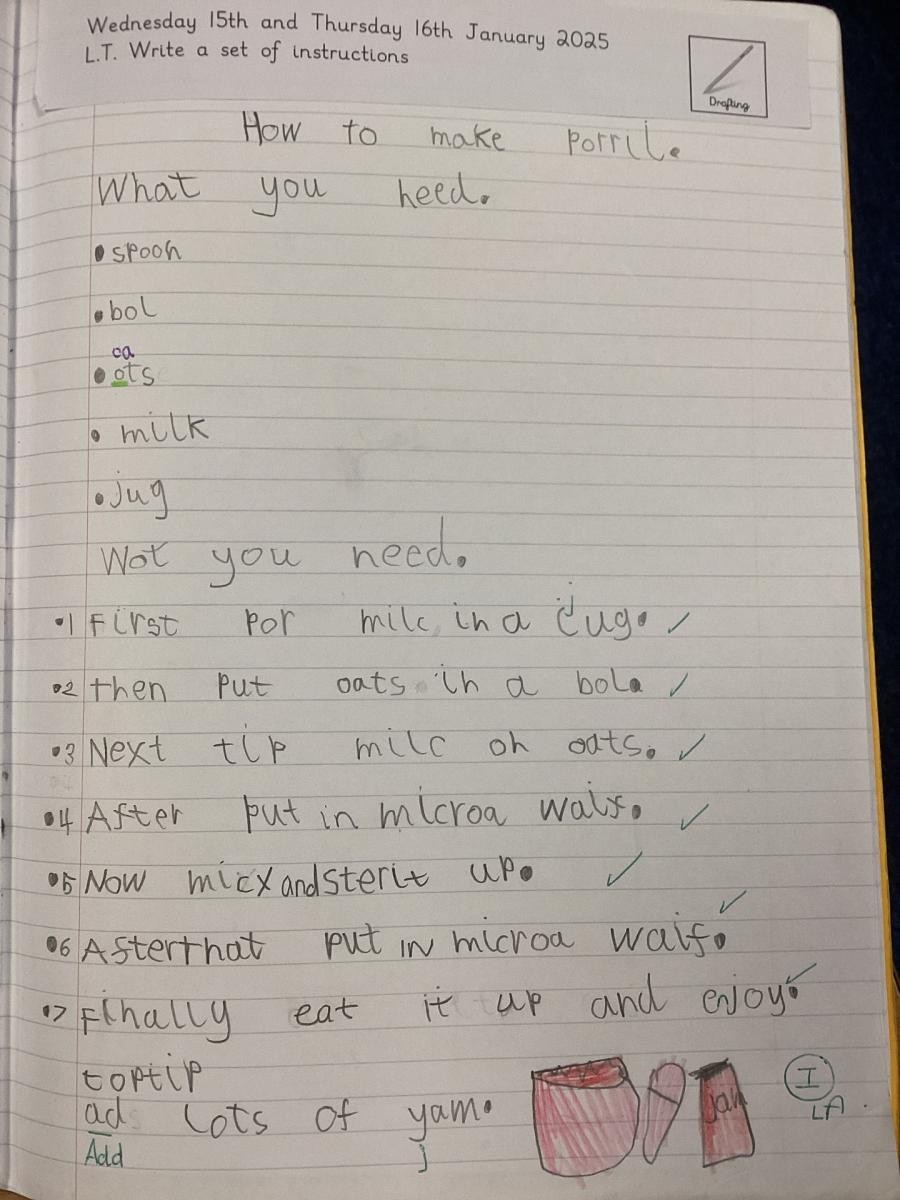 Wednesday 15th and Thursday 16th January 2025
L.T. Write a set of instructions
Drafting
How to make porril.
What you need.
• spoon
• bol
oa
• ots
• milk
• jug
Wot you need.
•1 First por milc in a jug. ✓
•2 then put oats in a bol. ✓
•3 Next tip milc on oats. ✓
•4 After put in microa waif. ✓
•5 Now micx and sterit up. ✓
•6 Afterthat put in microa waif. ✓
•7 Finally eat it up and enjoy. ✓
toptip
ad lots of yam.
Add j
jam
I
LA